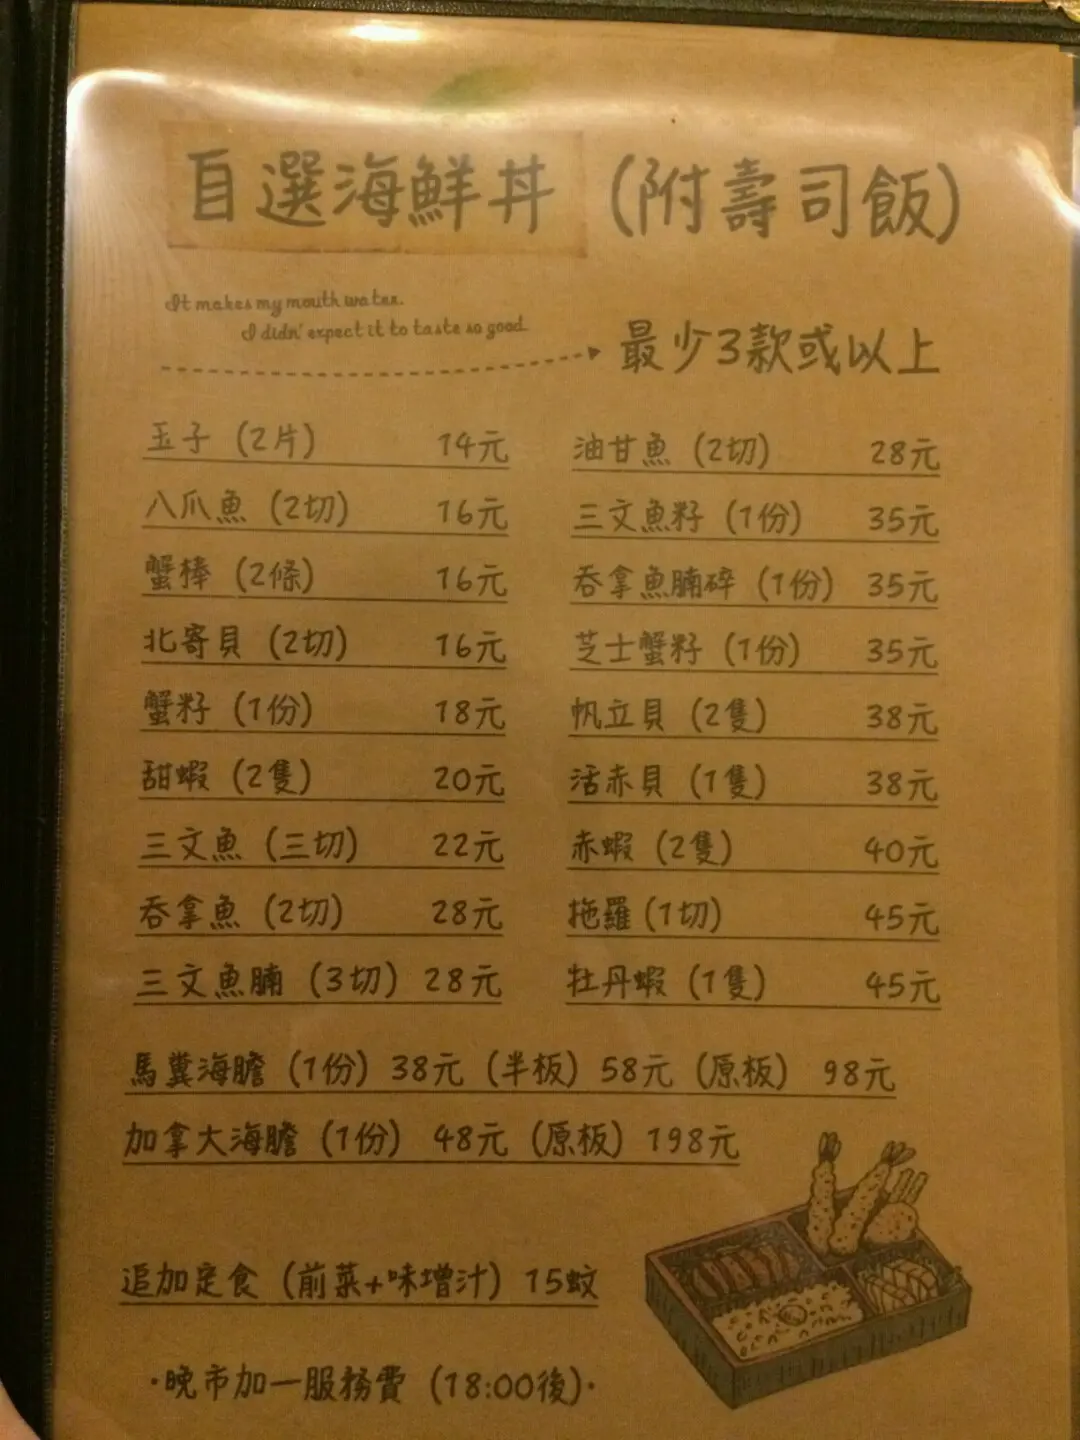 自選海鮮丼 (附壽司飯)
It makes my mouth water.
I didn' expect it to taste so good
最少3款或以上
玉子 (2片) 14元
八爪魚 (2切) 16元
蟹棒 (2條) 16元
北寄貝 (2切) 16元
蟹籽 (1份) 18元
甜蝦 (2隻) 20元
三文魚 (三切) 22元
吞拿魚 (2切) 28元
三文魚腩 (3切) 28元
油甘魚 (2切) 28元
三文魚籽 (1份) 35元
吞拿魚腩碎 (1份) 35元
芝士蟹籽 (1份) 35元
帆立貝 (2隻) 38元
活赤貝 (1隻) 38元
赤蝦 (2隻) 40元
拖羅 (1切) 45元
牡丹蝦 (1隻) 45元
馬糞海膽 (1份) 38元 (半板) 58元 (原板) 98元
加拿大海膽 (1份) 48元 (原板) 198元
追加定食 (前菜+味增汁) 15蚊
·晚市加一服務費 (18:00後)·